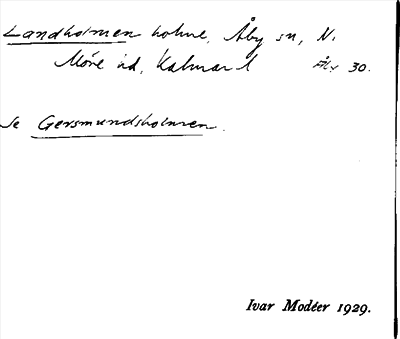 Landholmen holme, Åby sn, N.
Möre hd, Kalmar l Åby 30.
Se Gersmundsholmen.
Ivar Modéer 1929.